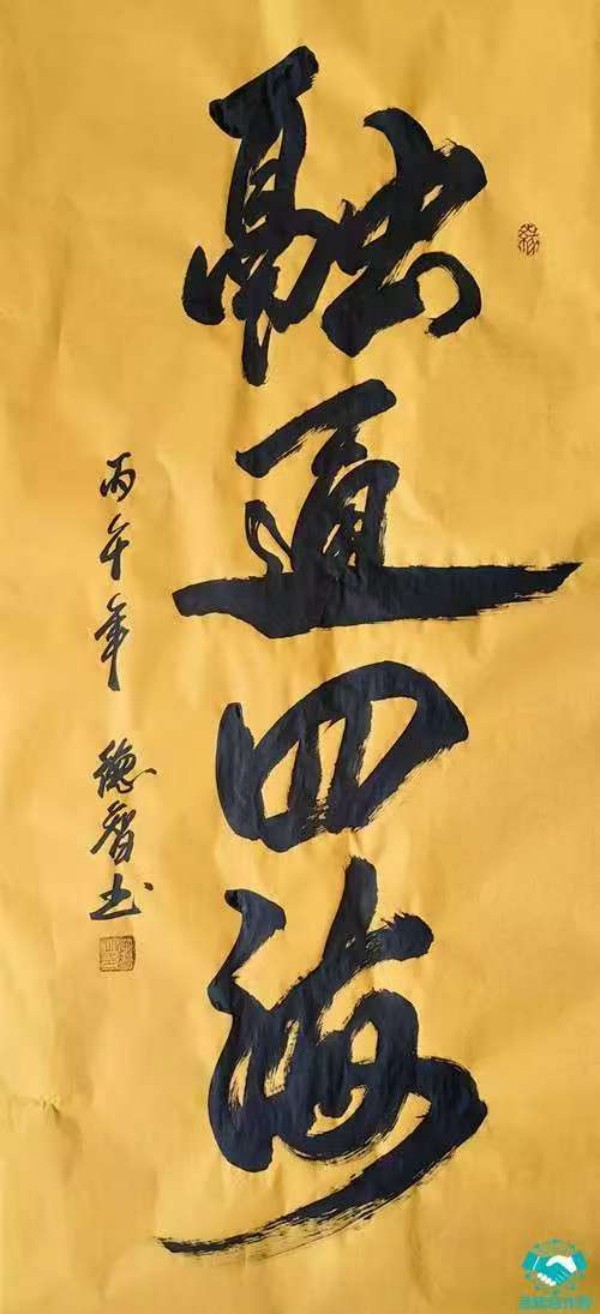 融通四海
丙午年 德智书